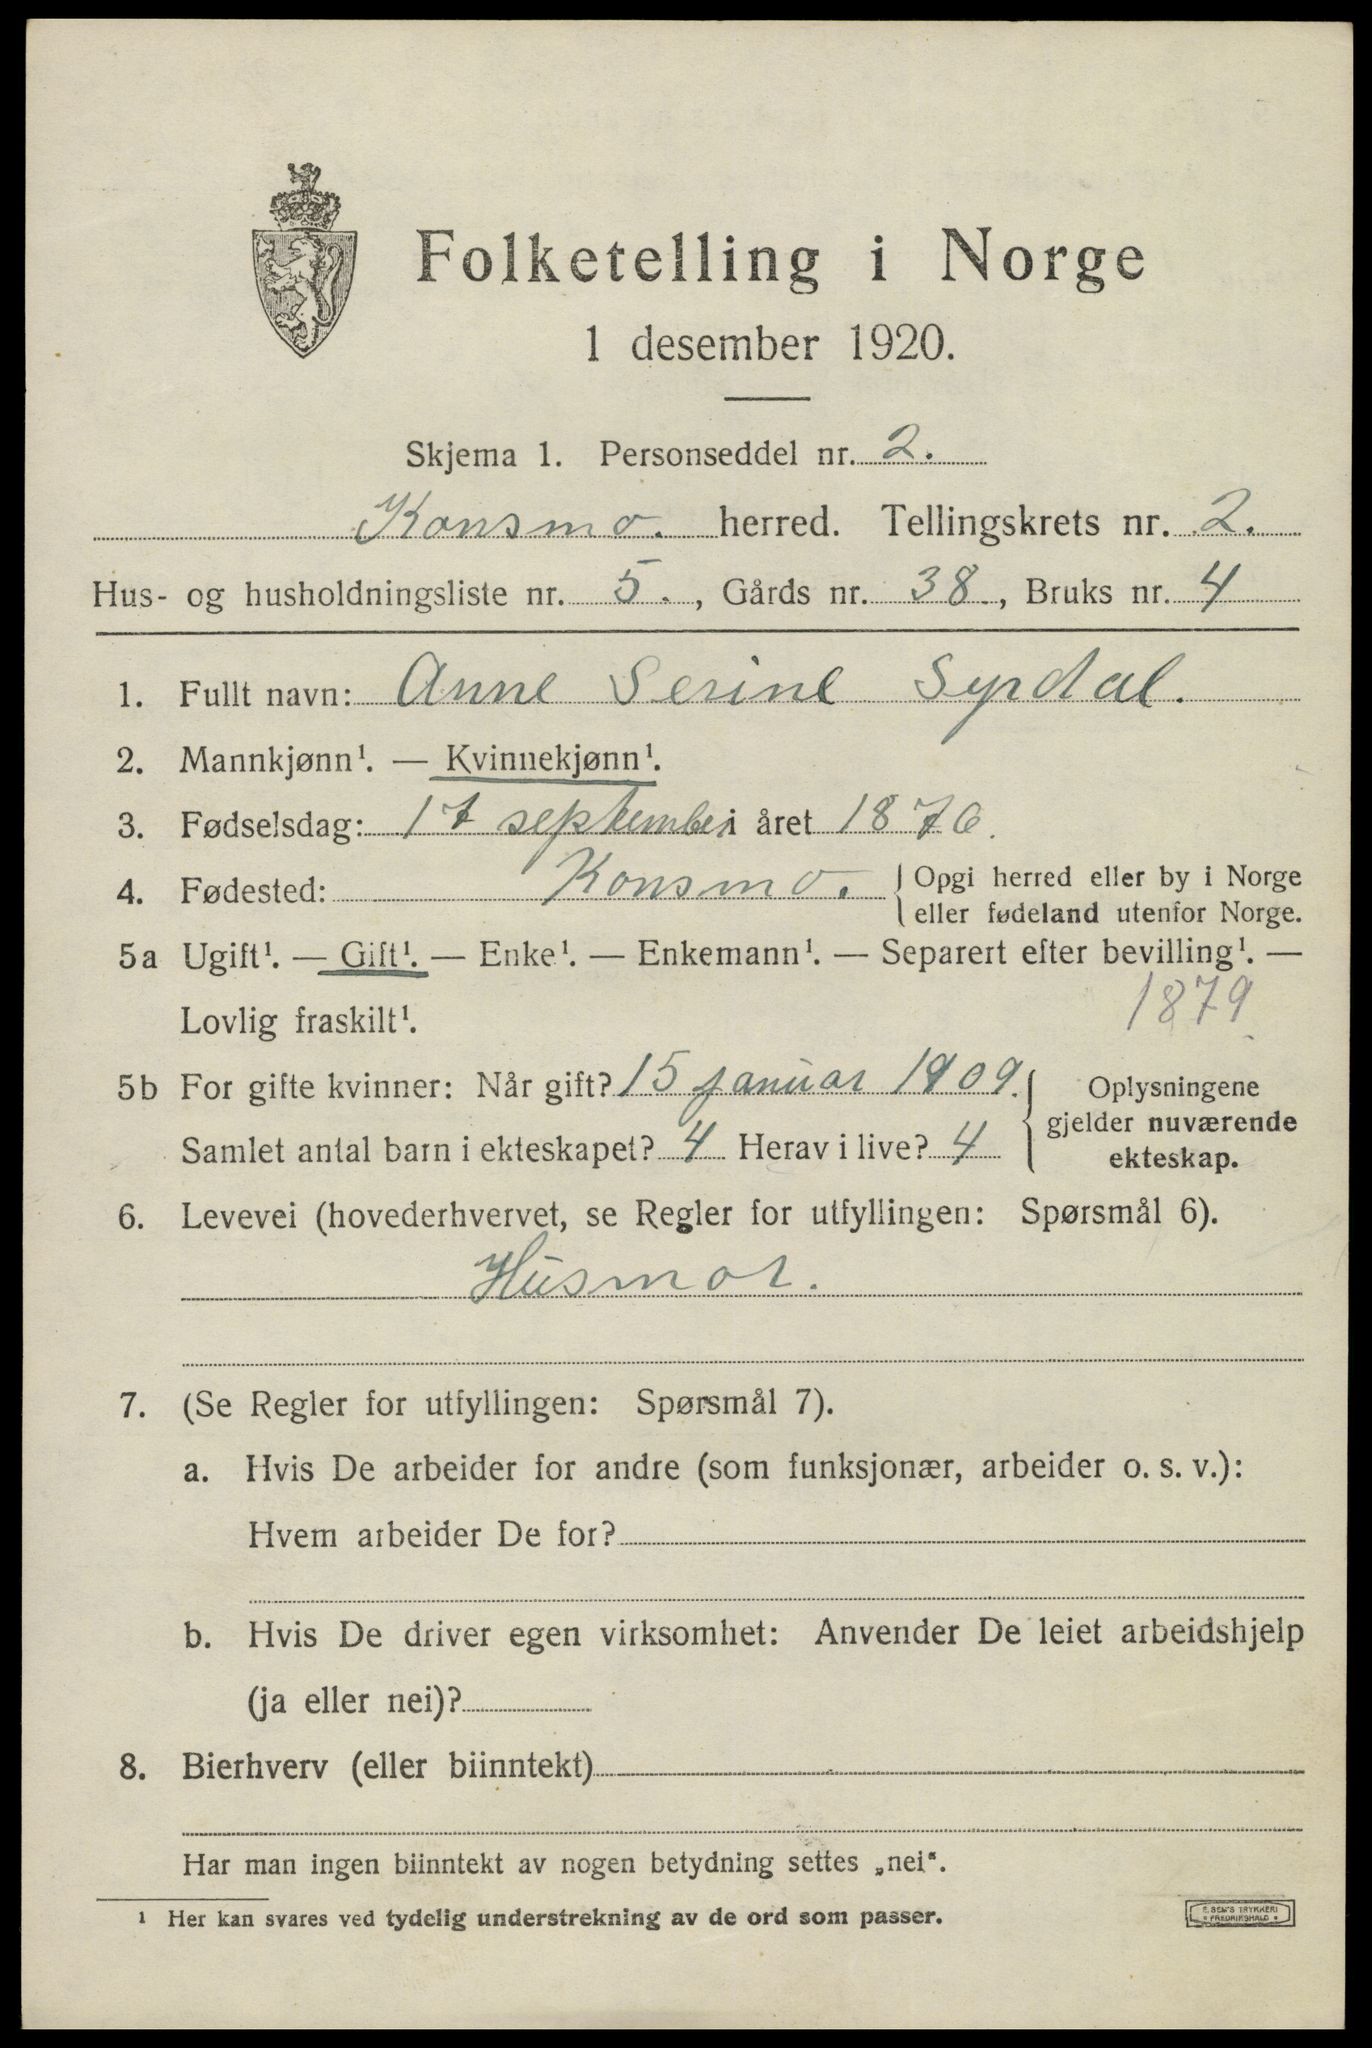 Folketelling i Norge
1 desember 1920.
Skjema 1. Personseddel nr. 2.
Konsmo. herred. Tellingskrets nr. 2.
Hus- og husholdningsliste nr. 5., Gårds nr. 38, Bruks nr. 4
1. Fullt navn: Anne Serine Syrdal.
2. Mannkjønn¹. — Kvinnekjønn¹.
3. Fødselsdag: 17 september i året 1876.
4. Fødested: Konsmo. { Opgi herred eller by i Norge
eller fødeland utenfor Norge.
5a Ugift¹. — Gift¹. — Enke¹. — Enkemann¹. — Separert efter bevilling¹. —
Lovlig fraskilt¹. 1879
5b For gifte kvinner: Når gift? 15 januar 1909. { Oplysningene
gjelder nuværende
Samlet antal barn i ekteskapet? 4 Herav i live? 4 ekteskap.
6. Levevei (hovederhvervet, se Regler for utfyllingen: Spørsmål 6).
Husmor.
7. (Se Regler for utfyllingen: Spørsmål 7).
a. Hvis De arbeider for andre (som funksjonær, arbeider o. s. v.):
Hvem arbeider De for?
b. Hvis De driver egen virksomhet: Anvender De leiet arbeidshjelp
(ja eller nei)?
8. Bierhverv (eller biinntekt)
Har man ingen biinntekt av nogen betydning settes „nei“.
¹ Her kan svares ved tydelig understrekning av de ord som passer.
E. SEM'S TRYKKERI
FREDRIKSHALD